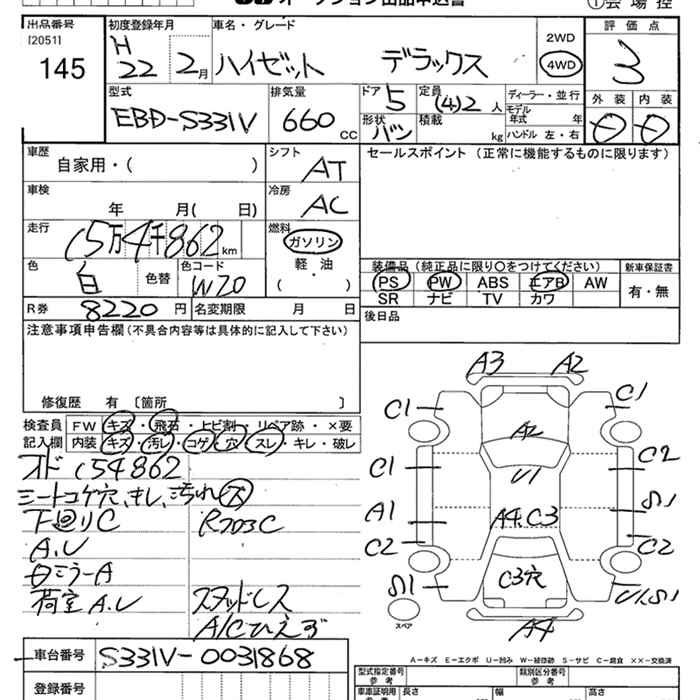 出品番号
[2051]
145
初度登録年月
H
22 2月
車名・グレード
ハイゼット デラックス
2WD
4WD
評価点
3
外装 内装
型式
EBD-S331V
排気量
660 CC
ドア 5
形状 バン
定員 (4)2 人
積載 kg
ディーラー・並行
モデル年式 年
ハンドル 左・右
車歴
自家用・( )
シフト
AT
車検
年 月( 日)
冷房
AC
走行
15万4千862km
燃料
ガソリン
軽・油
( )
色
白 色替
色コード
W20
R券 8220 円
名変期限 月 日
セールスポイント (正常に機能するものに限ります)
装備品 (純正品に限り○をつけてください)
PS PW ABS エアB AW
SR ナビ TV カワ
新車保証書
有・無
後日品
注意事項申告欄(不具合内容等は具体的に記入して下さい)
修復歴 有 〔箇所 〕
検査員
記入欄
FW キズ・飛石・トビ割・リペア跡・×要
内装 キズ・汚レ・コゲ・穴・スレ・キレ・破レ
オド 154862
シートコゲ穴、キレ、汚れ大
下廻りC R203C
A.U
ロミラーA
荷室A.U スタッドレス
A/Cひえず
A3 A2
C1 C1
A2
C1 U1 C2
A1 A4.C3 S1
C2 C2
S1 C3穴 U1.S1
スペア
A4
A-キズ E-エクボ U-凹み W-補修跡 S-サビ C-腐食 ××-交換済
車台番号 S331V-0031868
登録番号
型式指定番号
参考
類別区分番号
参考
車庫証明用
参考
長さ 幅 高さ